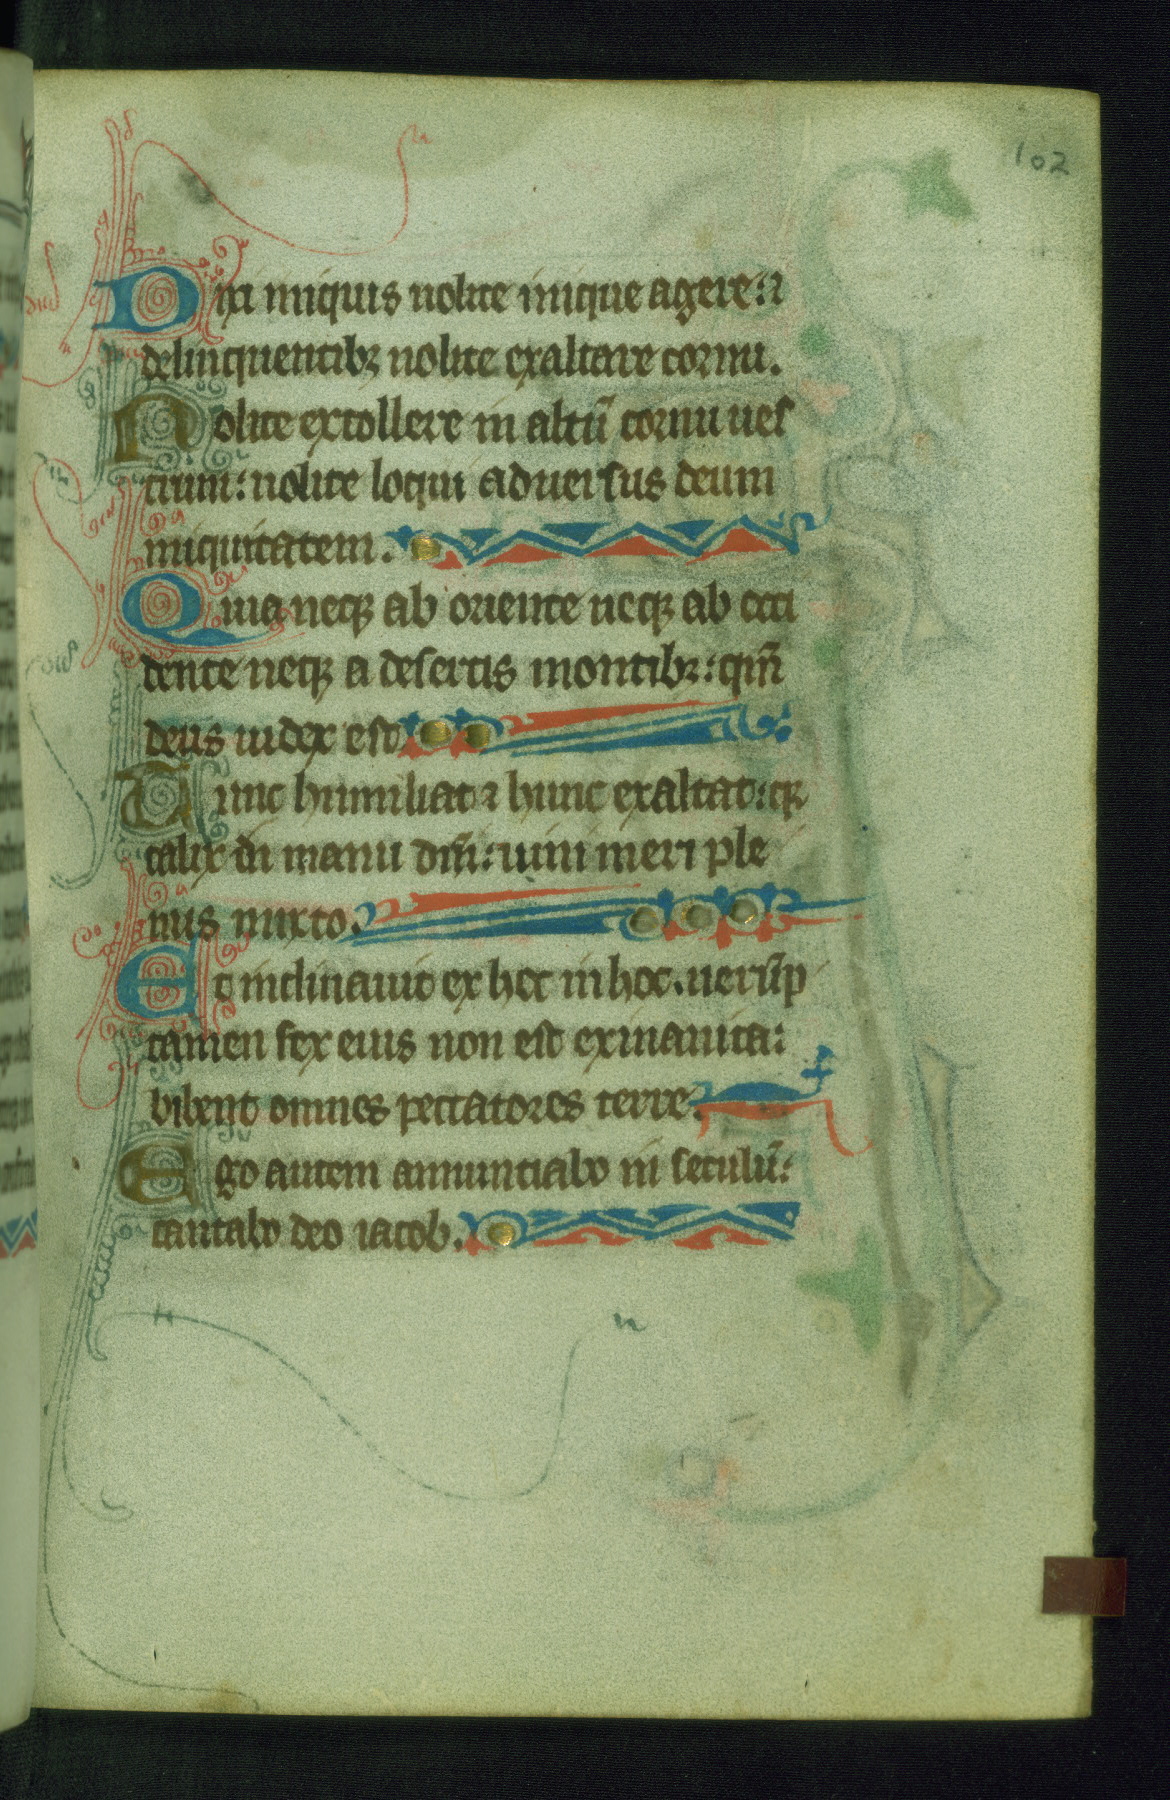 102
Dixi iniquis nolite inique agere: ⁊
delinquentibꝫ nolite exaltare cornu.
Nolite extollere in altū cornu ues
trum: nolite loqui aduersus deum
iniquitatem.
Quia neqꝫ ab oriente neqꝫ ab occi
dente neqꝫ a desertis montibꝫ: qm̄
deus iudex est
hunc humiliat ⁊ hunc exaltat: qꝫ
calix in manu dn̄i: uini meri ple
nus mixto.
Et inclinauit ex hoc in hoc. uerūp
tamen fex eius non est exinanita:
bibent omnes peccatores terre.
Ego autem annunciabo in seculū:
cantabo deo iacob.